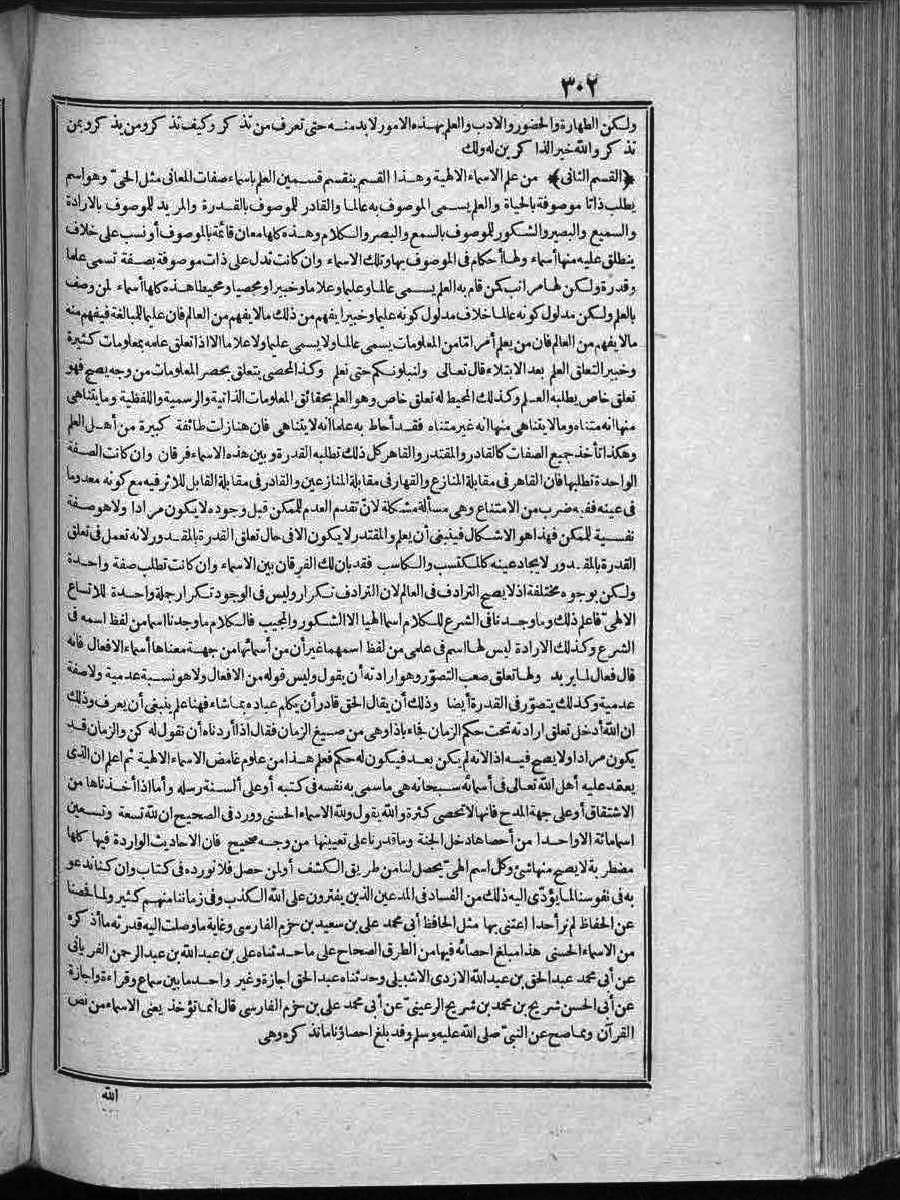 ٣٠٢
ولكن الطهارة والحضور والادب والعلم بهذه الامور لابد منه حتى تعرف من تذكر وكيف تذكر ومن يذكر وبمن
تذكر والله خير الذاكرين له ولك
﴿القسم الثانى﴾ من علم الاسماء الالهية وهذا القسم ينقسم قسمين العلم باسماء صفات المعانى مثل الحىّ وهو اسم
يطلب ذاتا موصوفة بالحياة والعلم يسمى الموصوف به عالما والقادر للموصوف بالقدرة والمريد للموصوف بالارادة
والسميع والبصير والشكور للموصوف بالسمع والبصر والكلام وهذه كلها معان قائمة بالموصوف أو نسب على خلاف
ينطلق عليه منها أسماء ولها أحكام فى الموصوف بها وتلك الاسماء وان كانت تدل على ذات موصوفة بصفة تسمى علما
وقدرة ولكن لها مراتب كمن قام به العلم يسمى عالما وعليما وعلاما وخبيرا ومحصيا ومحيطا هذه كلها أسماء لمن وصف
بالعلم ولكن مدلول كونه عالما خلاف مدلول كونه عليما وخبيرا يفهم من ذلك مالا يفهم من العالم فان عليما للمبالغة فيفهم منه
مالا يفهم من العالم فان من يعلم أمرا تمامن المعلومات يسمى عالما ولا يسمى عليما ولا علاما الا اذا تعلق علمه بمعلومات كثيرة
وخبير التعلق العلم بعد الابتلاء قال تعالى ولنبلونكم حتى نعلم وكذا المحصى يتعلق بحصر المعلومات من وجه يصح فهو
تعلق خاص يطلبه العلم وكذلك المحيط له تعلق خاص وهو العلم بحقائق المعلومات الذاتية والرسمية واللفظية وما يتناهى
منها انه متناه ومالا يتناهى منها انه غير متناه فقد أحاط به علما انه لا يتناهى فان هنا زلت طائفة كبيرة من أهل العلم
وهكذا تأخذ جميع الصفات كالقادر والمقتدر والقاهر كل ذلك تطلبه القدرة وبين هذه الاسماء فرقان وان كانت الصفة
الواحدة تطلبها فان القاهر فى مقابلة المنازع والقهار فى مقابلة المنازعين والقادر فى مقابلة القابل للاثر فيه مع كونه معدوما
فى عينه ففيه ضرب من الامتناع وهى مسألة مشكلة لانّ تقدم العدم للممكن قبل وجوده لا يكون مرادا ولا هو صفة
نفسية للممكن فهذا هو الاشكال فينبغى أن يعلم والمقتدر لا يكون الا فى حال تعلق القدرة بالمقدور لانه تعمل فى تعلق
القدرة بالمقدور لايجاد عينه كالمكتسب والكاسب فقد بان لك الفرقان بين الاسماء وان كانت تطلب صفة واحدة
ولكن بوجوه مختلفة اذ لا يصح الترادف فى العالم لان الترادف تكرار وليس فى الوجود تكرار جلة واحدة للاتساع
الالهىّ فاعلم ذلك وما وجدنا فى الشرع للكلام اسما الهيا الا الشكور والمجيب فالكلام ما وجدنا اسما من لفظ اسمه فى
الشرع وكذلك الارادة ليس لها اسم فى علمى من لفظ اسمهما غير أن من أسمائها من جهة معناها أسماء الافعال فانه
قال فعال لما يريد ولها تعلق صعب التصوّر وهو ارادته أن يقول وليس قوله من الافعال ولا هو نسبة عدمية ولا صفة
عدمية وكذلك يتصوّر فى القدرة أيضا وذلك أن يقال الحق قادر أن يكلم عباده بما شاء فهنا علم ينبغى أن يعرف وذلك
ان الله أدخل تعلق ارادته تحت حكم الزمان فجاء باذا وهى من صيغ الزمان فقال اذا أردناه أن نقول له كن والزمان قد
يكون مرادا ولا يصح فيه اذا لانه لم يكن بعد فيكون له حكم فعلم هذا من علوم غامض الاسماء الالهية ثم اعلم ان الذى
يعقد عليه أهل الله تعالى فى أسمائه سبحانه هى ما سمى به نفسه فى كتبه أو على ألسنة رسله وأما اذا أخذناها من
الاشتقاق أو على جهة المدح فانها لا تحصى كثرة والله يقول ولله الاسماء الحسنى وورد فى الصحيح ان لله تسعة وتسعين
اسما مائة الا واحدا من أحصاها دخل الجنة وما قدرنا على تعيينها من وجه صحيح فان الاحاديث الواردة فيها كلها
مضطربة لا يصح منها شئ وكل اسم الهىّ يحصل لنا من طريق الكشف أو لمن حصل فلا نورده فى كتاب وان كنا ندعو
به فى نفوسنا لما يؤدّى اليه ذلك من الفساد فى المدعين الذين يفترون على الله الكذب وفى زماننا منهم كثير ولما فحصنا
عن الحفاظ لم نر أحدا اعتنى بها مثل الحافظ أبى محمد على بن سعيد بن حزم الفارسى وغاية ما وصلت اليه قدرته ما أذكره
من الاسماء الحسنى هذا مبلغ احصائه فيها من الطرق الصحاح على ما حدثناه على بن عبد الله بن عبد الرحمن الفريأنى
عن أبى محمد عبد الحق بن عبد الله الازدى الاشبيلى وحدثناه عبد الحق اجازة وغير واحد ما بين سماع وقراءة واجازة
عن أبى الحسن شريح بن محمد بن شريح الرعينىّ عن أبى محمد على بن حزم الفارسى قال انما تؤخذ يعنى الاسماء من نص
القرآن وبما صح عن النبىّ صلى الله عليه وسلم وقد بلغ احصاؤنا ما نذكره وهى
الله